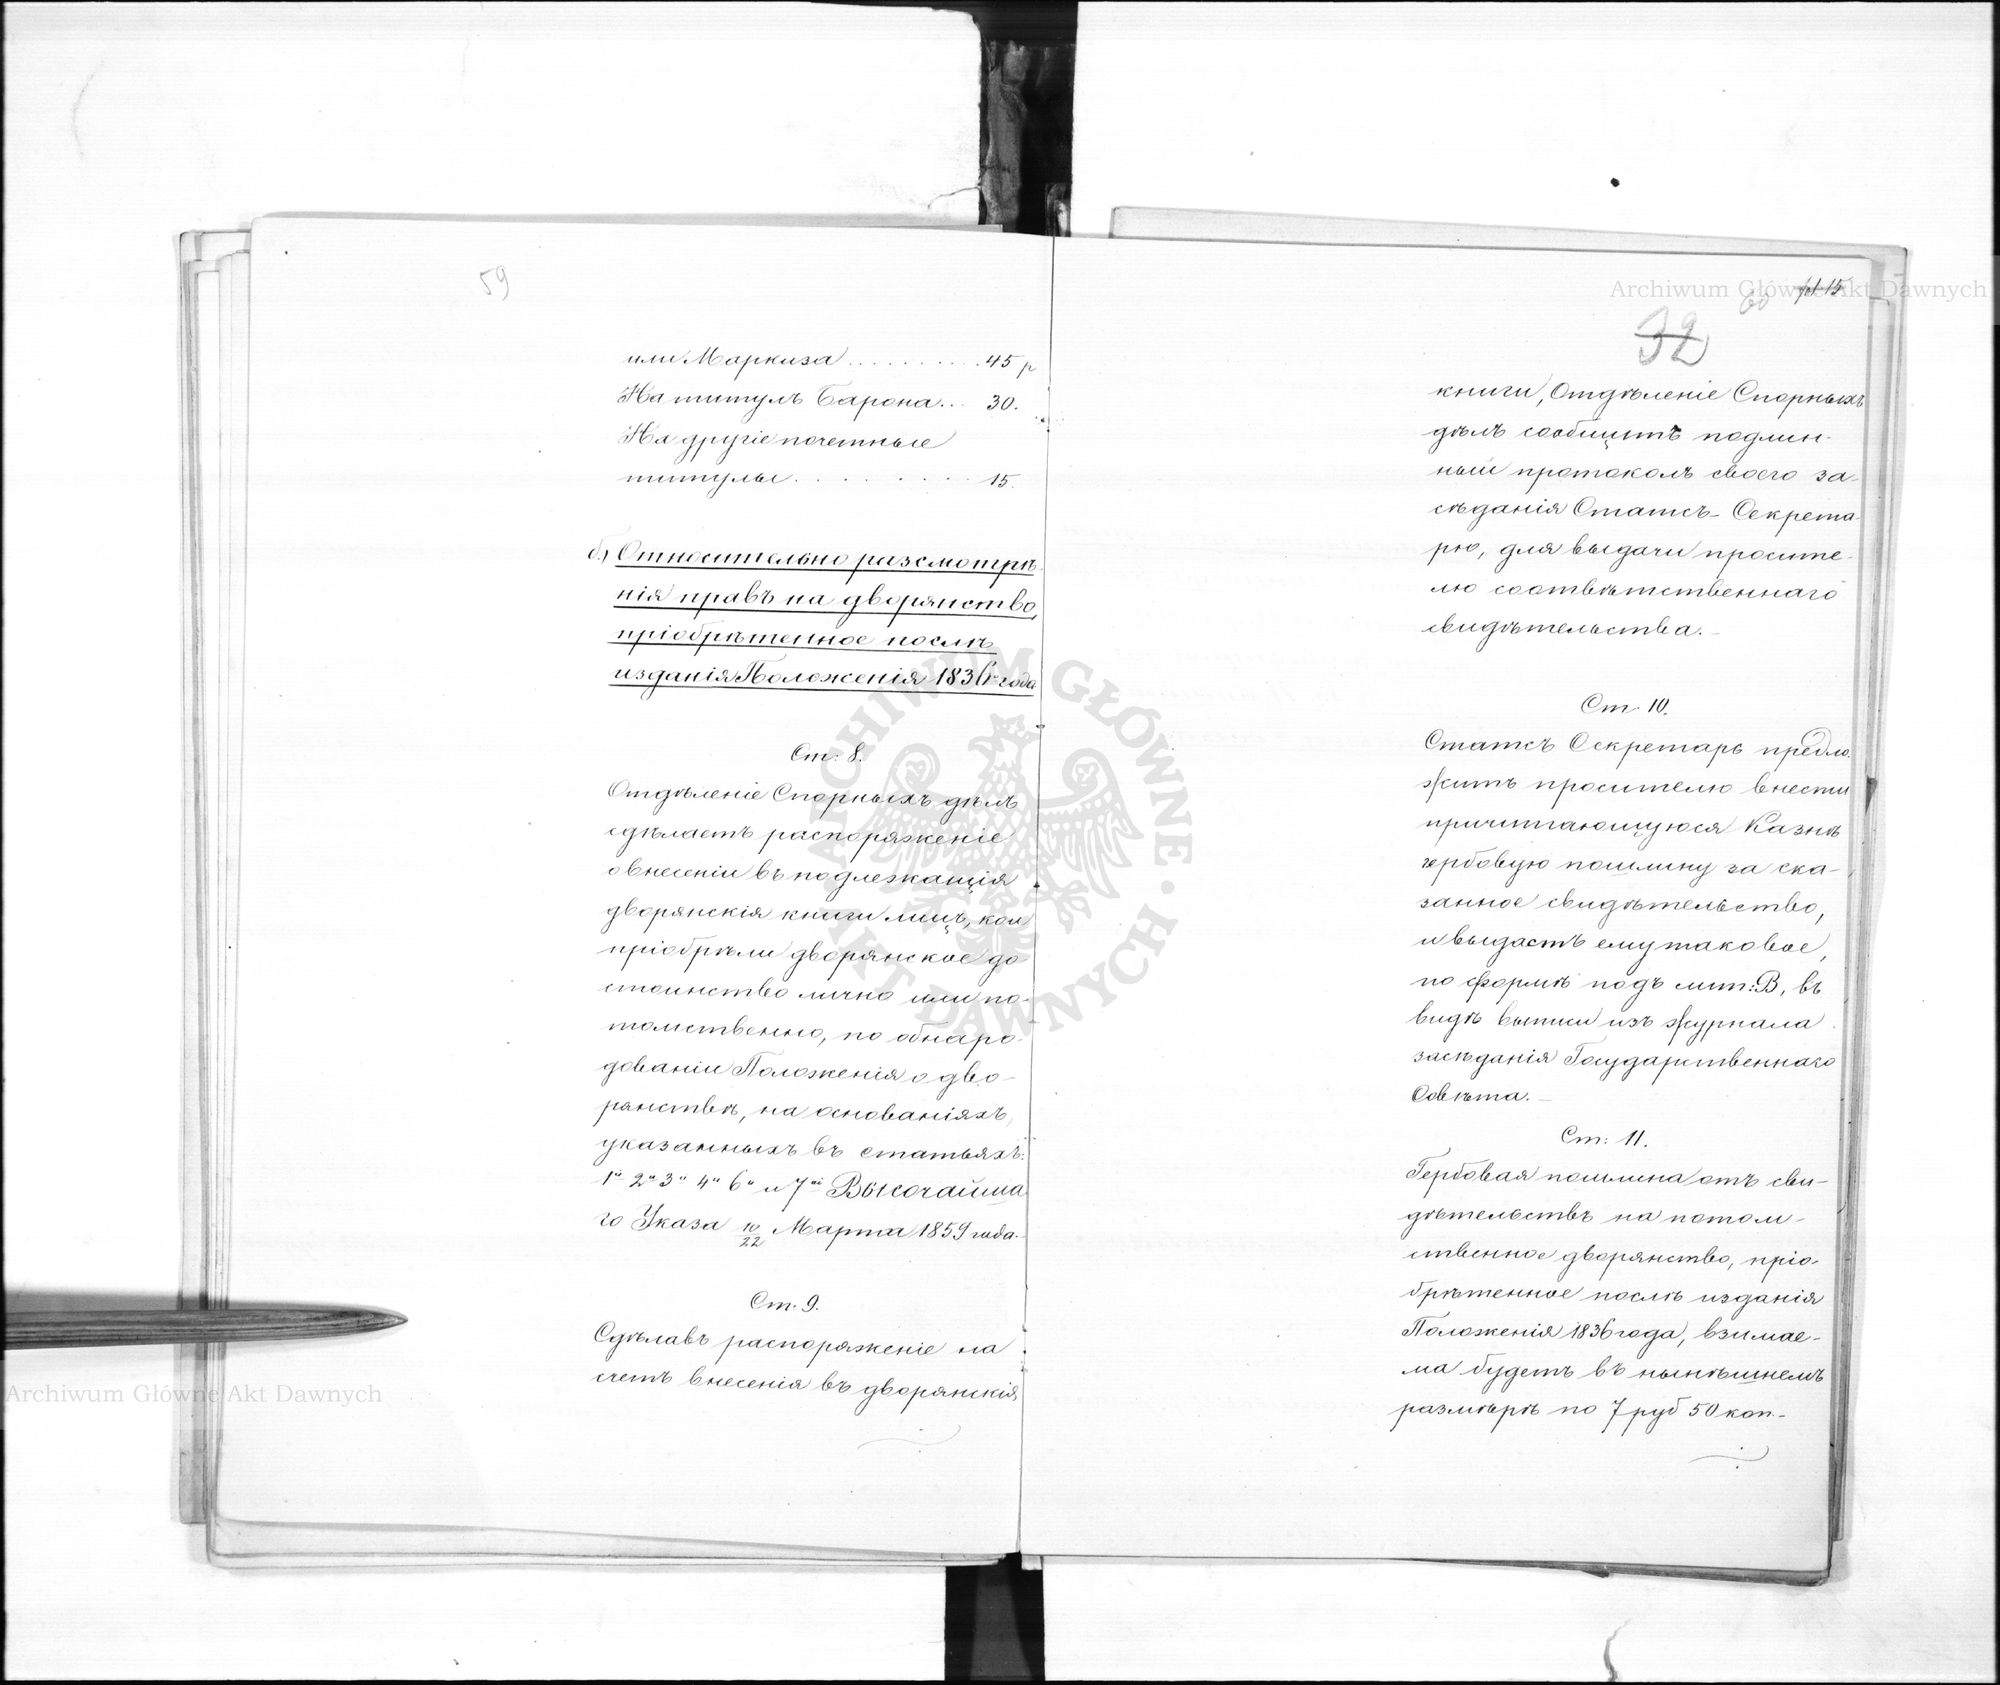 59
или Маркиза . . . . . . . . . . 45 р
На титулъ Барона . . . 30.
На другіе почетные
титулы . . . . . . . . . . 15.
б) Относительно разсмотрѣ-
нія правъ на дворянство,
пріобрѣтенное послѣ
изданія Положенія 1836 года
Ст: 8.
Отдѣленіе Спорныхъ дѣлъ
сдѣлаетъ распоряженіе
о внесеніи въ подлежащія
дворянскія книги лицъ, кои
пріобрѣли дворянское до
стоинство лично или по-
томственно, по обнаро-
дованіи Положенія о дво-
рянствѣ, на основаніяхъ,
указанныхъ въ статьяхъ:
1й 2й 3й 4й 6й и 7ой Высочайша
го Указа 10/22 Марта 1859 года.
Ст. 9.
Сдѣлавъ распоряженіе на
счетъ внесенія въ дворянскія
60
32
книги, Отдѣленіе Спорныхъ
дѣлъ сообщитъ подлин-
ный протоколъ своего за-
сѣданія Статсъ-Секрета-
рю, для выдачи просите-
лю соотвѣтственнаго
свидѣтельства.
Ст. 10.
Статсъ Секретарь предло-
житъ просителю внести
причитающуюся Казнѣ
гербовую пошлину за ска-
занное свидѣтельство,
и выдастъ ему таковое,
по формѣ подъ лит: В, въ
видѣ выписи изъ журнала
засѣданія Государственнаго
Совѣта.
Ст: 11.
Гербовая пошлина отъ сви-
дѣтельствъ на потом-
ственное дворянство, пріо-
брѣтенное послѣ изданія
Положенія 1836 года, взимае-
ма будетъ въ нынѣшнемъ
размѣрѣ по 7 руб 50 коп.-
Archiwum Główne Akt Dawnych
Archiwum Główne Akt Dawnych
ARCHIWUM GŁÓWNE AKT DAWNYCH